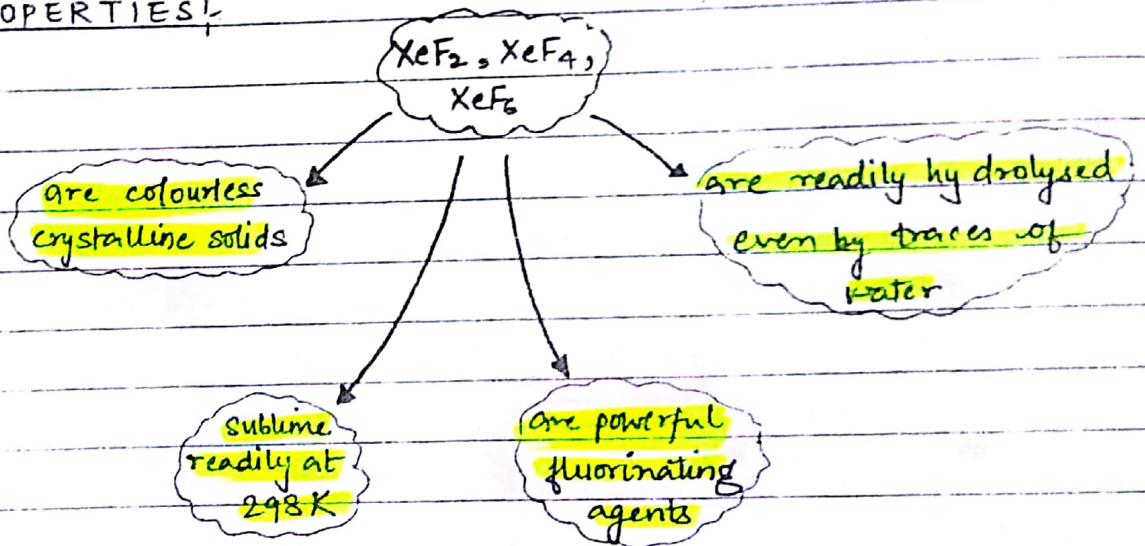 OPERTIES:-
XeF₂, XeF₄,
XeF₆
are colourless
crystalline solids
are readily hydrolysed
even by traces of
water
sublime
readily at
298K
are powerful
fluorinating
agents